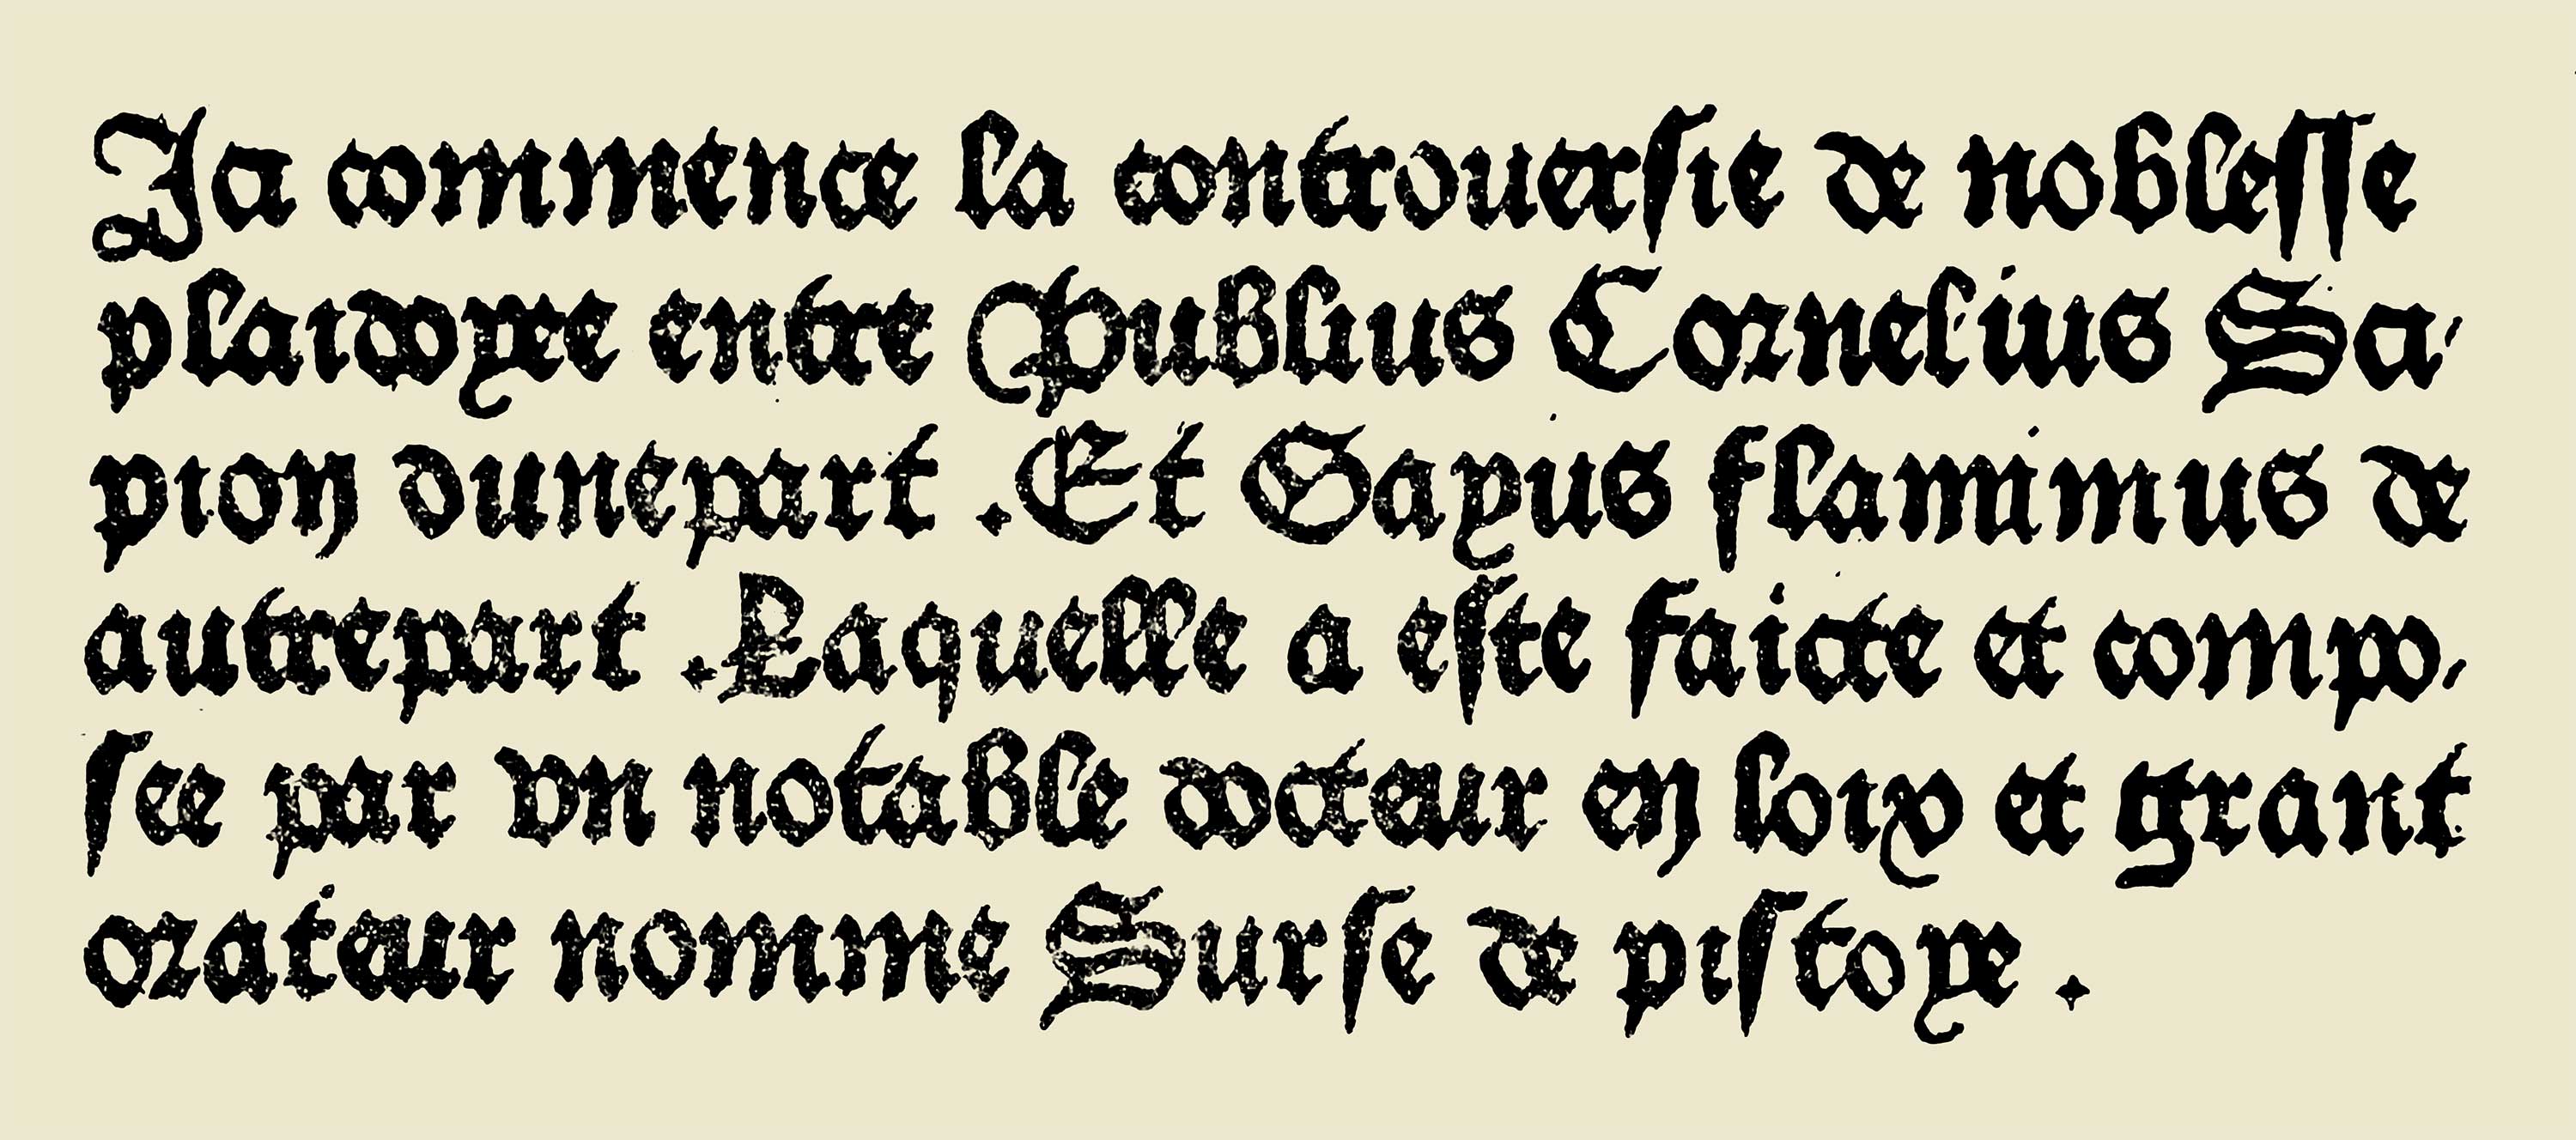 Ja commence la controuersie de noblesse
plaidoyee entre Publius Cornelius Sa-
pion dunepart .Et Gayus flaminius de
autrepart .Laquelle a este faicte et compo-
see par vn notable docteur en loix et grant
orateur nomme Surse de pistoye .